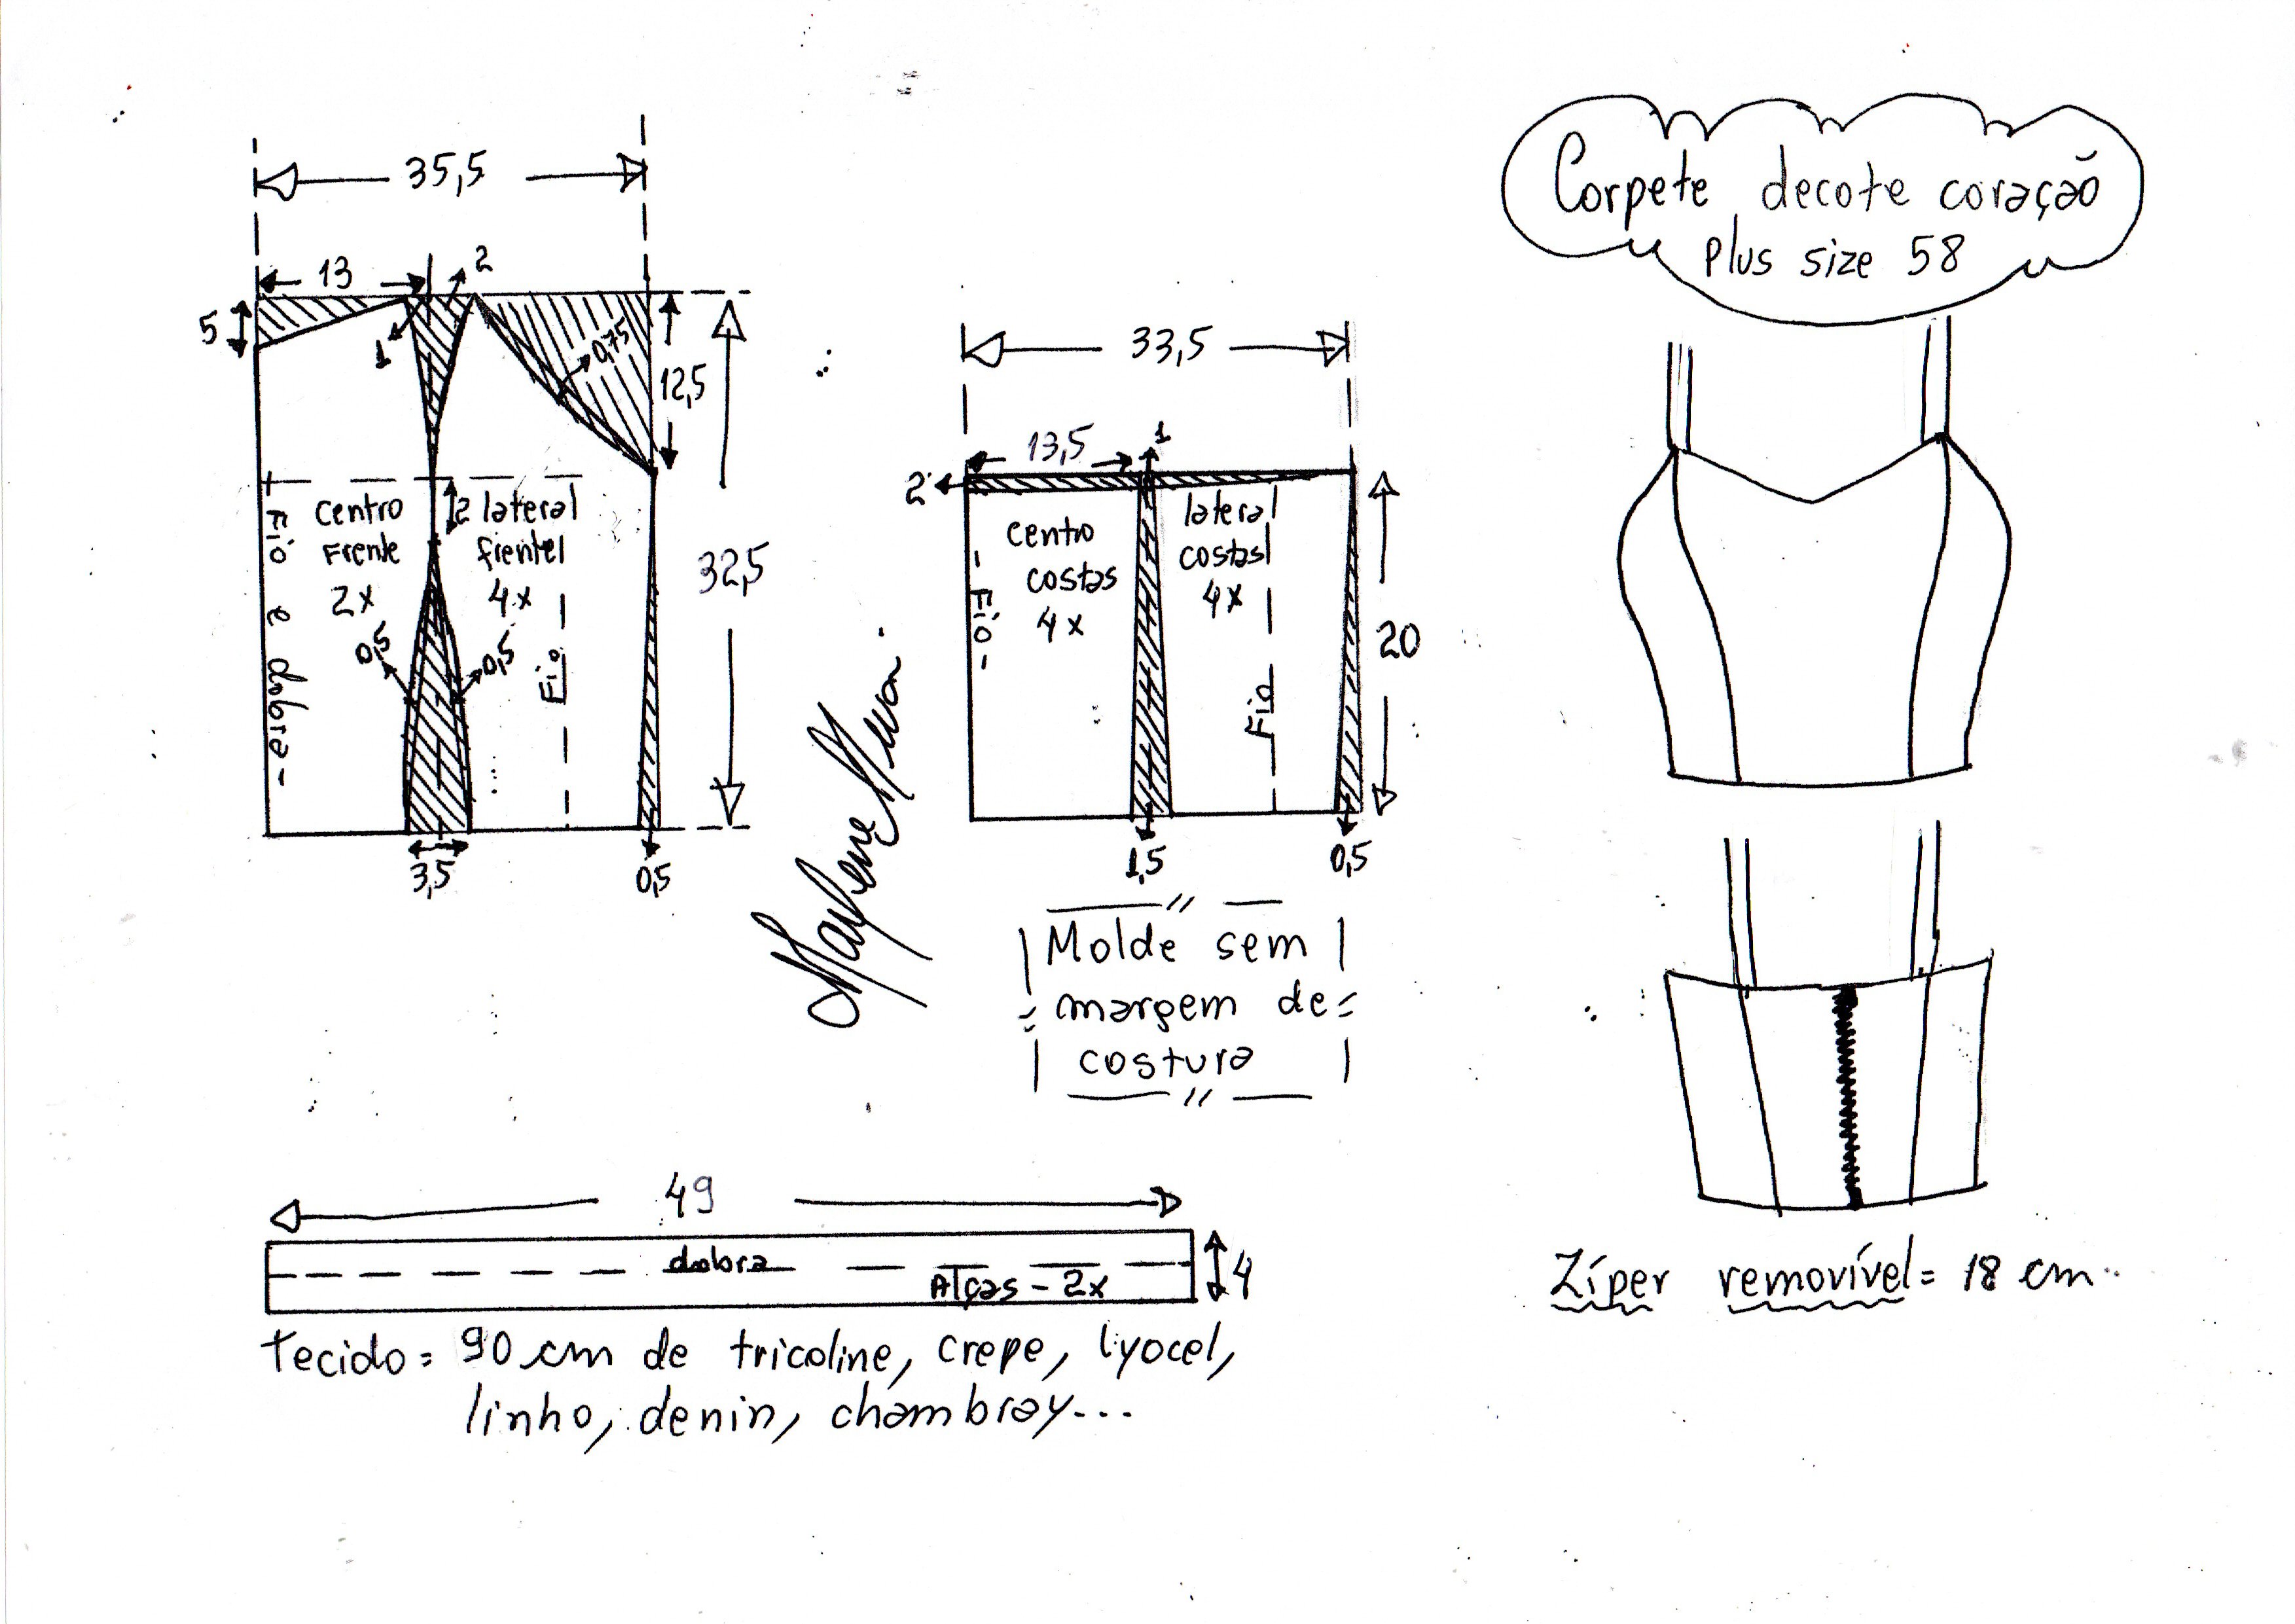 Corpete decote coração
plus size 58
35,5
13
2
5
1
0,75
12,5
centro
Frente
2x
2
lateral
frente
4x
- Fio e dobra -
Fio
0,5
0,5
32,5
3,5
0,5
33,5
13,5
1
2
centro
costas
4x
lateral
costas
4x
- Fio -
Fio
20
1,5
0,5
Marlene Mukai
Molde sem
margem de
costura
49
dobra
Alças - 2x
4
Tecido = 90 cm de tricoline, crepe, lyocel,
linho, denin, chambray...
Zíper removível = 18 cm